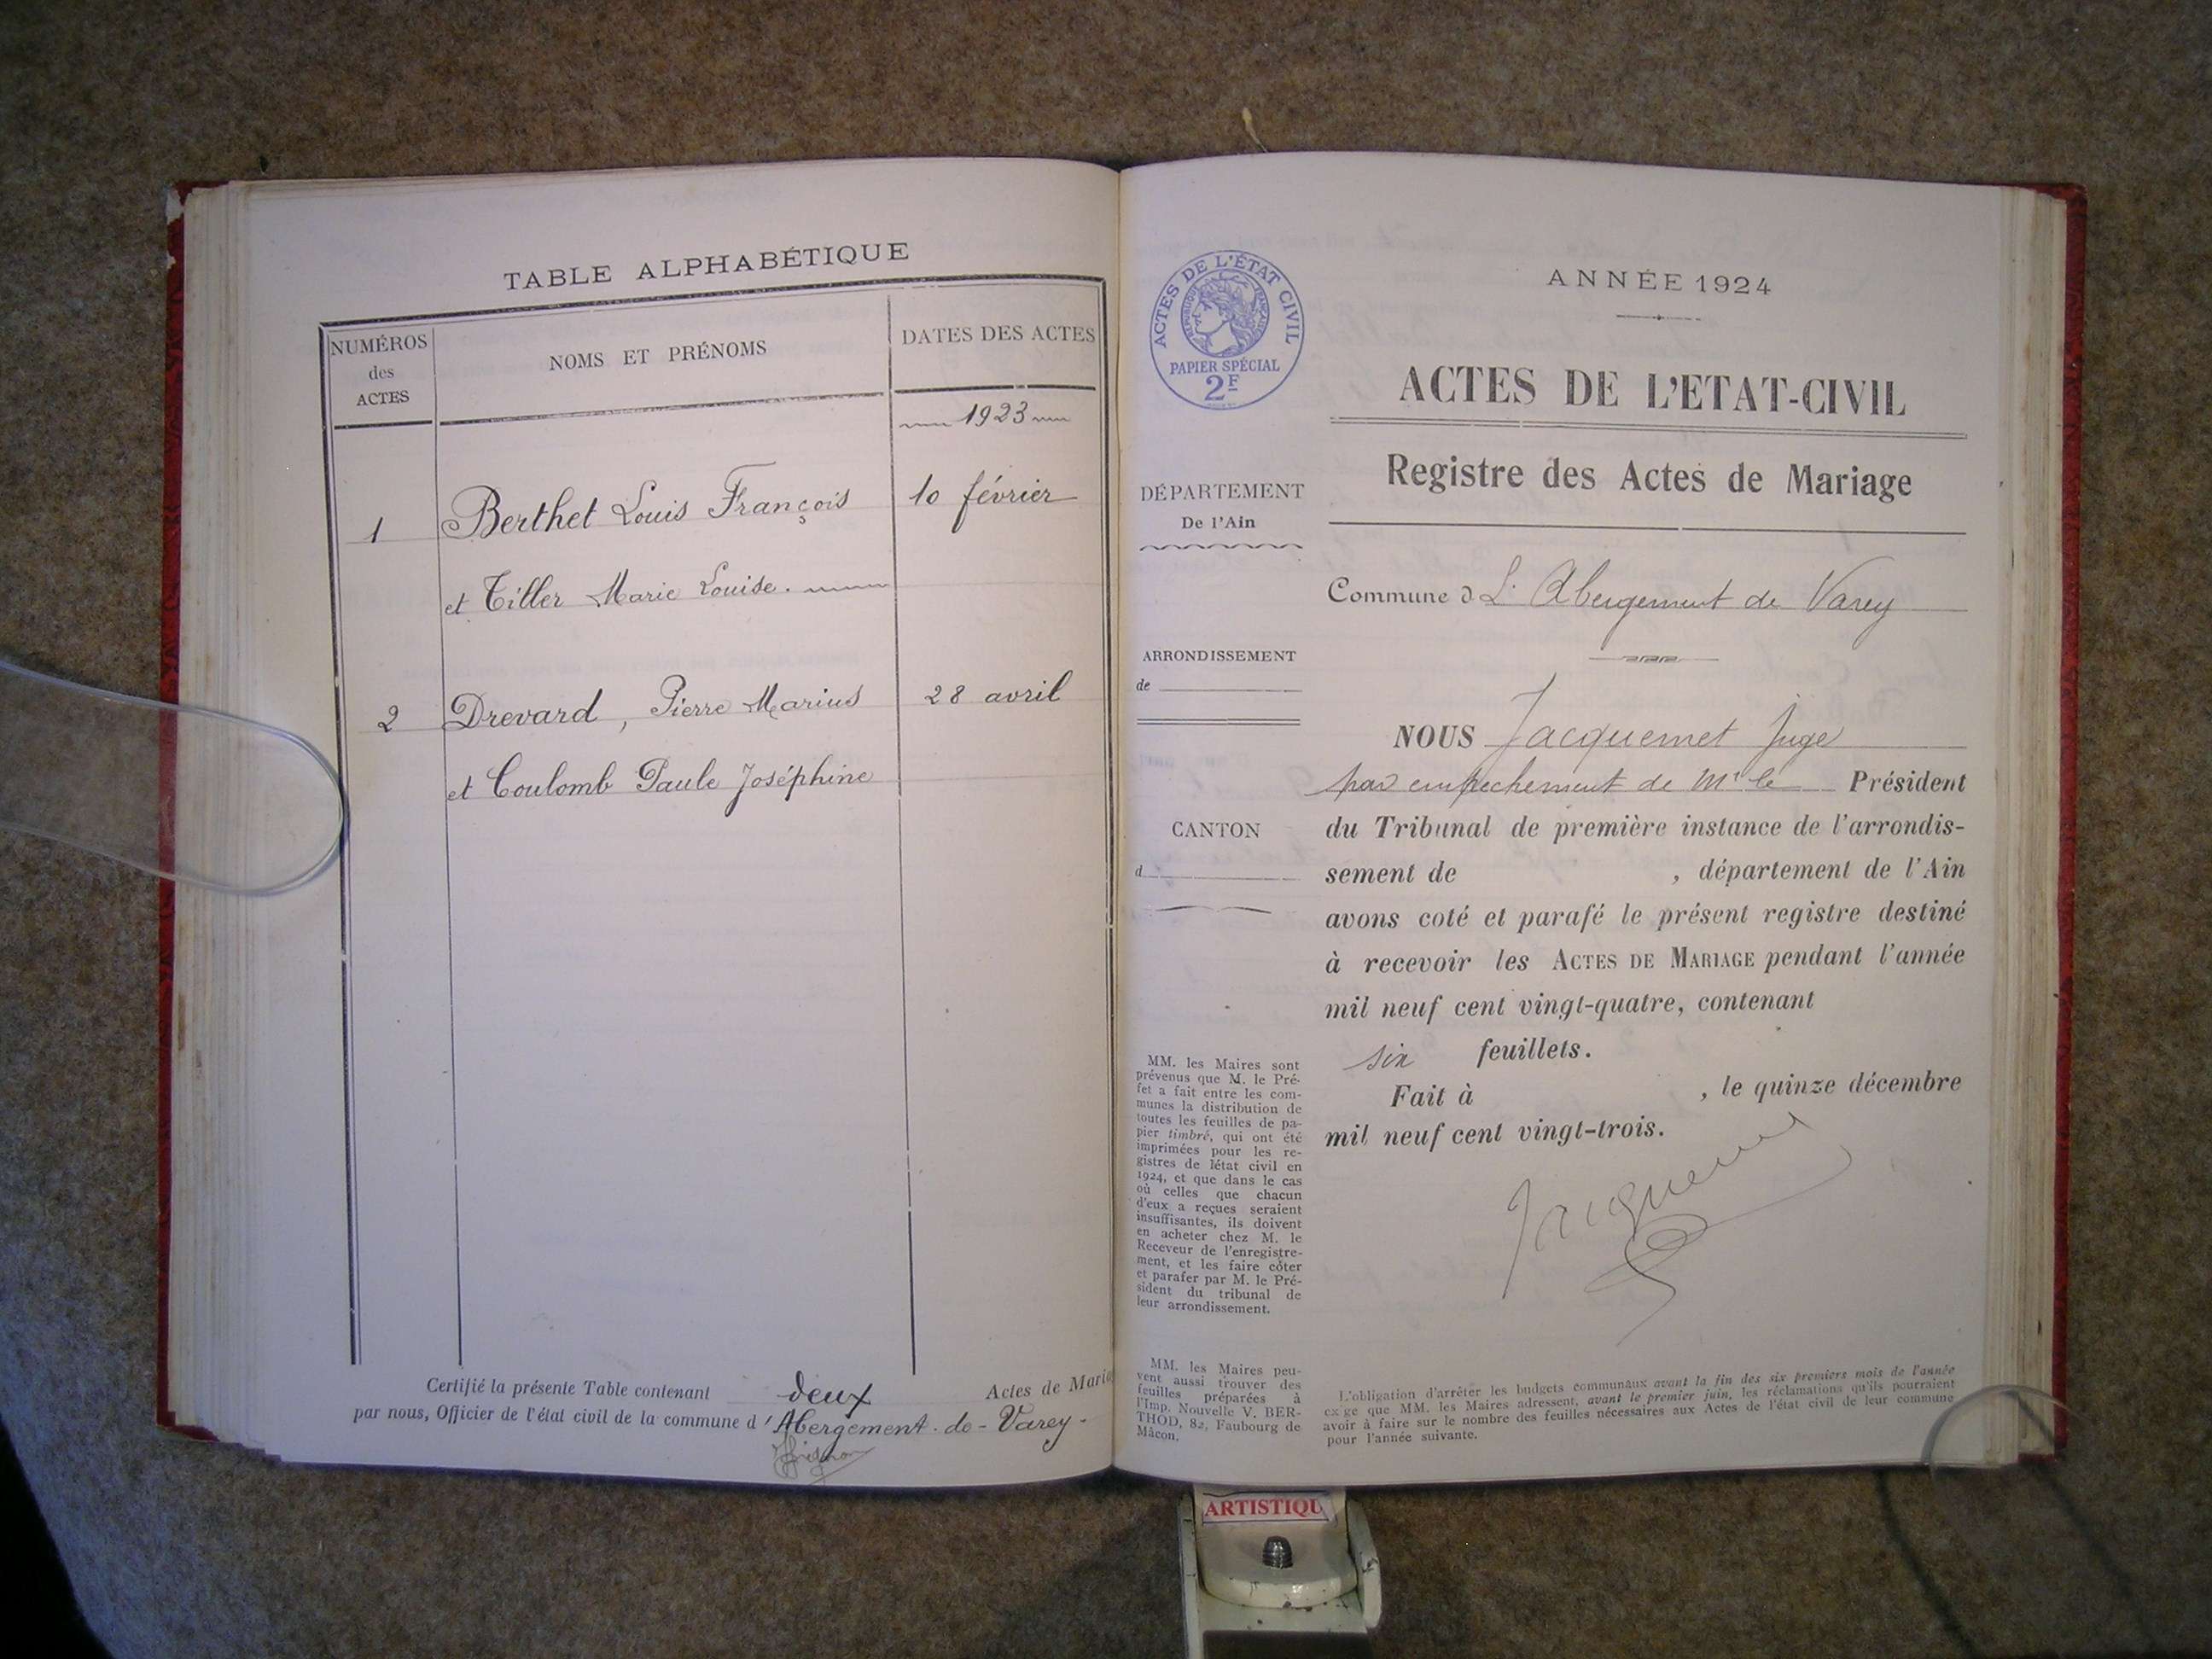 TABLE ALPHABÉTIQUE
NUMÉROS
des
ACTES
NOMS ET PRÉNOMS
DATES DES ACTES
1923
1 Berthet Louis François 10 février
et Tiller Marie Louise.
2 Drevard, Pierre Marius 28 avril
et Coulomb Paule Joséphine
Certifié la présente Table contenant deux Actes de Maria
par nous, Officier de l'état civil de la commune d'Abergement-de-Varey-
ACTES DE L'ÉTAT CIVIL
RÉPUBLIQUE FRANÇAISE
PAPIER SPÉCIAL
2F
DÉPARTEMENT
De l'Ain
ARRONDISSEMENT
de
CANTON
d
MM. les Maires sont
prévenus que M. le Pré-
fet a fait entre les com-
munes la distribution de
toutes les feuilles de pa-
pier timbré, qui ont été
imprimées pour les re-
gistres de l'état civil en
1924, et que dans le cas
où celles que chacun
d'eux a reçues seraient
insuffisantes, ils doivent
en acheter chez M. le
Receveur de l'enregistre-
ment, et les faire côter
et parafer par M. le Pré-
sident du tribunal de
leur arrondissement.
MM. les Maires peu-
vent aussi trouver des
feuilles préparées à
l'Imp. Nouvelle V. BER-
THOD, 82, Faubourg de
Mâcon.
ANNÉE 1924
ACTES DE L'ETAT-CIVIL
Registre des Actes de Mariage
Commune d L'Abergement de Varey
NOUS Jacquemet Juge
par empechement de Mr le Président
du Tribunal de première instance de l'arrondis-
sement de , département de l'Ain
avons coté et parafé le présent registre destiné
à recevoir les ACTES DE MARIAGE pendant l'année
mil neuf cent vingt-quatre, contenant
six feuillets.
Fait à , le quinze décembre
mil neuf cent vingt-trois.
Jacquemet
L'obligation d'arrêter les budgets communaux avant la fin des six premiers mois de l'année
exige que MM. les Maires adressent, avant le premier juin, les réclamations qu'ils pourraient
avoir à faire sur le nombre des feuilles nécessaires aux Actes de l'état civil de leur commune
pour l'année suivante.
ARTISTIQU